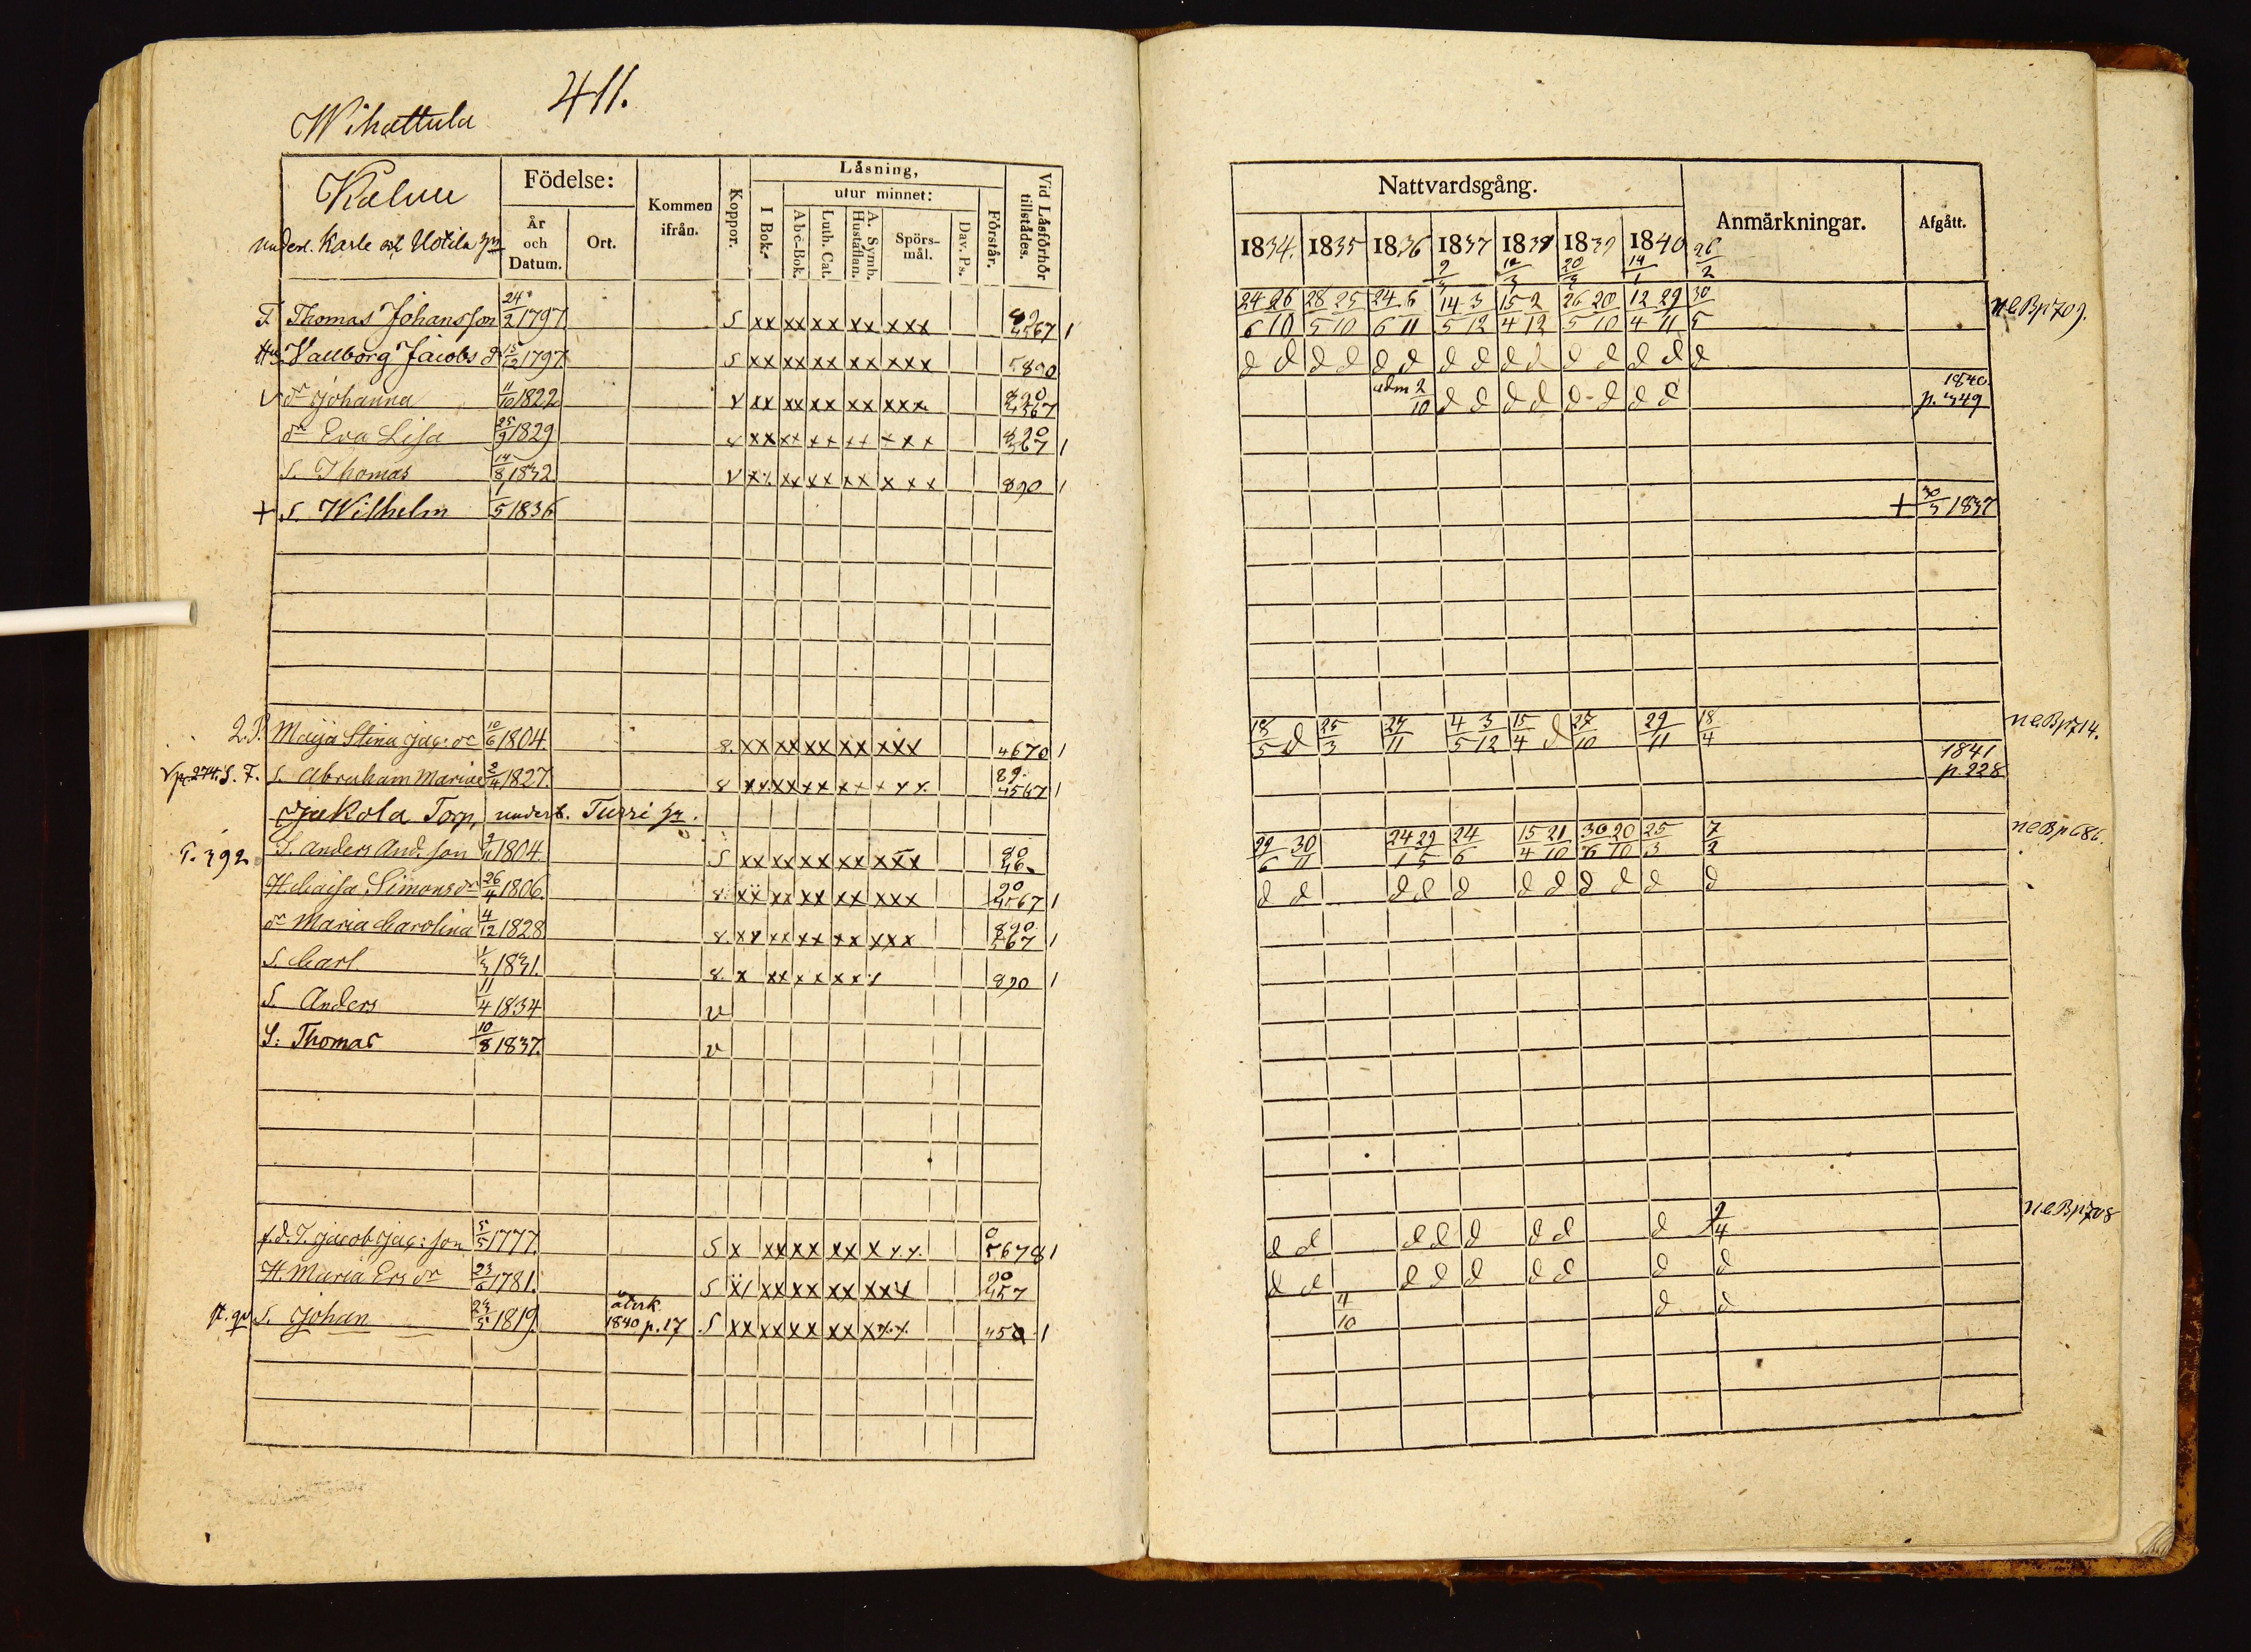 411.
Wihattula
Kalvu
underl. Karle och Uotila hn
Födelse:
År och Datum.
Ort.
Kommen ifrån.
Koppor.
Läsning,
utur minnet:
I Bok.
Abc-Bok.
Luth. Cat.
A. Symb. Hustaflan.
Spörs-mål.
Dav. Ps.
Förstår.
Vid Läsförhör tillstädes.
T. Thomas Johansson 24/2 1797 S xx xx xx xx xxx 89 4567 1
Hu Vallborg Jacobs dr 15/12 1797 S xx xx xx xx xxx 5890
v dr Johanna 11/10 1822 v xx xx xx xx xxx 890 4567
dr Eva Lisa 25/9 1829 8 xx xx xx xx xxx 890 567 1
S. Thomas 14/8 1832 v x xx xx xx xxx 890 1
+ S. Wilhelm 1/5 1836
2. P. Maija Stina Jac: dr 10/6 1804 8. xx xx xx xx xxx 4670 1
v p. 274. S. F. S. Abraham Mariae 2/4 1827 8 xx xx xx xx xxx 89 4567 1
Jakola Torp, under b. Turri hn.
T. 392 S. Anders And. son 9/11 1804 S xx xx xx xx xxx 90 46
H. Caisa Simons dr 26/4 1806. 8. xx xx xx xx xxx 90 4567 1
dr Maria Carolina 4/12 1828 8. xx xx xx xx xxx 890 567 1
S. Carl 1/3 1831. 8. x xx xx xx 890 1
S. Anders 11/4 1834 v
S: Thomas 10/8 1837. v
f.d. T. Jacob Jac: son 5/5 1777. S x xx xx xx xxx 0 5678 1
H. Maria Ers dr 23/6 1781. S xx xx xx xxx 90 457
S. Johan 23/5 1819. återk. 1840 p. 17 S xx xx xx xx xxx 450 1
Nattvardsgång.
Anmärkningar.
Afgått.
1834. 1835 1836 1837 1838 1839 1840
9/3 12/3 20/3 14/1 26/2
24/6 26/10 28/5 25/10 24/6 6/11 14/5 3/12 15/4 2/12 26/5 20/10 12/4 29/11 30/5 n e B p 709.
d d d d d d d d d d d d d d d
adm 2/10 d d d d d d d d 1840 p. 349
+ 30/5 1837
18/5 d 25/3 27/11 4/5 3/12 15/4 d 27/10 29/11 18/4 n e B p 714.
1841 p. 228
29/6 30/11 24/1 29/5 24/6 15/4 21/10 30/6 20/10 25/3 7/2 n e B p 686.
d d d d d d d d d d d
d d d d d d d d 9/4 n e B p 708
d d d d d d d d d
4/10 d d